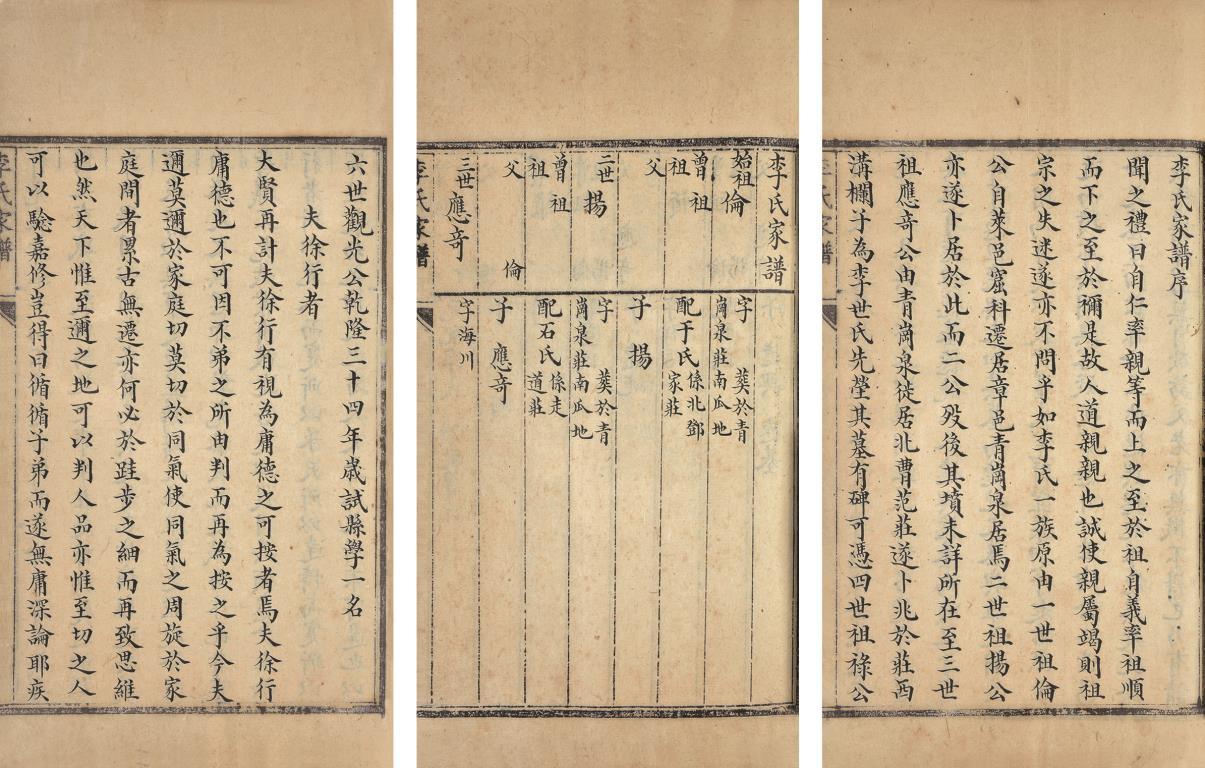 李氏家譜序
聞之禮曰自仁率親等而上之至於祖自義率祖順
而下之至於禰是故人道親親也誠使親屬竭則祖
宗之失迷遂亦不問乎如李氏一族原由一世祖倫
公自萊邑窟科遷居章邑青崗泉居焉二世祖揚公
亦遂卜居於此而二公歿後其墳未詳所在至三世
祖應奇公由青崗泉徙居北曹范莊遂卜兆於莊西
溝欄子為李世氏先塋其墓有碑可憑四世祖祿公
李氏家譜
始祖倫
曾祖
祖
父
二世揚
曾祖
祖
父 倫
三世應奇
字 葬於青
崗泉莊南瓜地
配于氏係北鄧
家莊
子 揚
字 葬於青
崗泉莊南瓜地
配石氏係走
道莊
子 應奇
字海川
李氏家譜
六世觀光公乾隆三十四年歲試縣學一名
夫徐行者
大賢再計夫徐行有視為庸德之可按者焉夫徐行
庸德也不可因不弟之所由判而再為按之乎今夫
邇莫邇於家庭切莫切於同氣使同氣之周旋於家
庭間者累古無遷亦何必於跬步之細而再致思維
也然天下惟至邇之地可以判人品亦惟至切之人
可以驗嘉修豈得曰循循子弟而遂無庸深論耶疾
李氏家譜